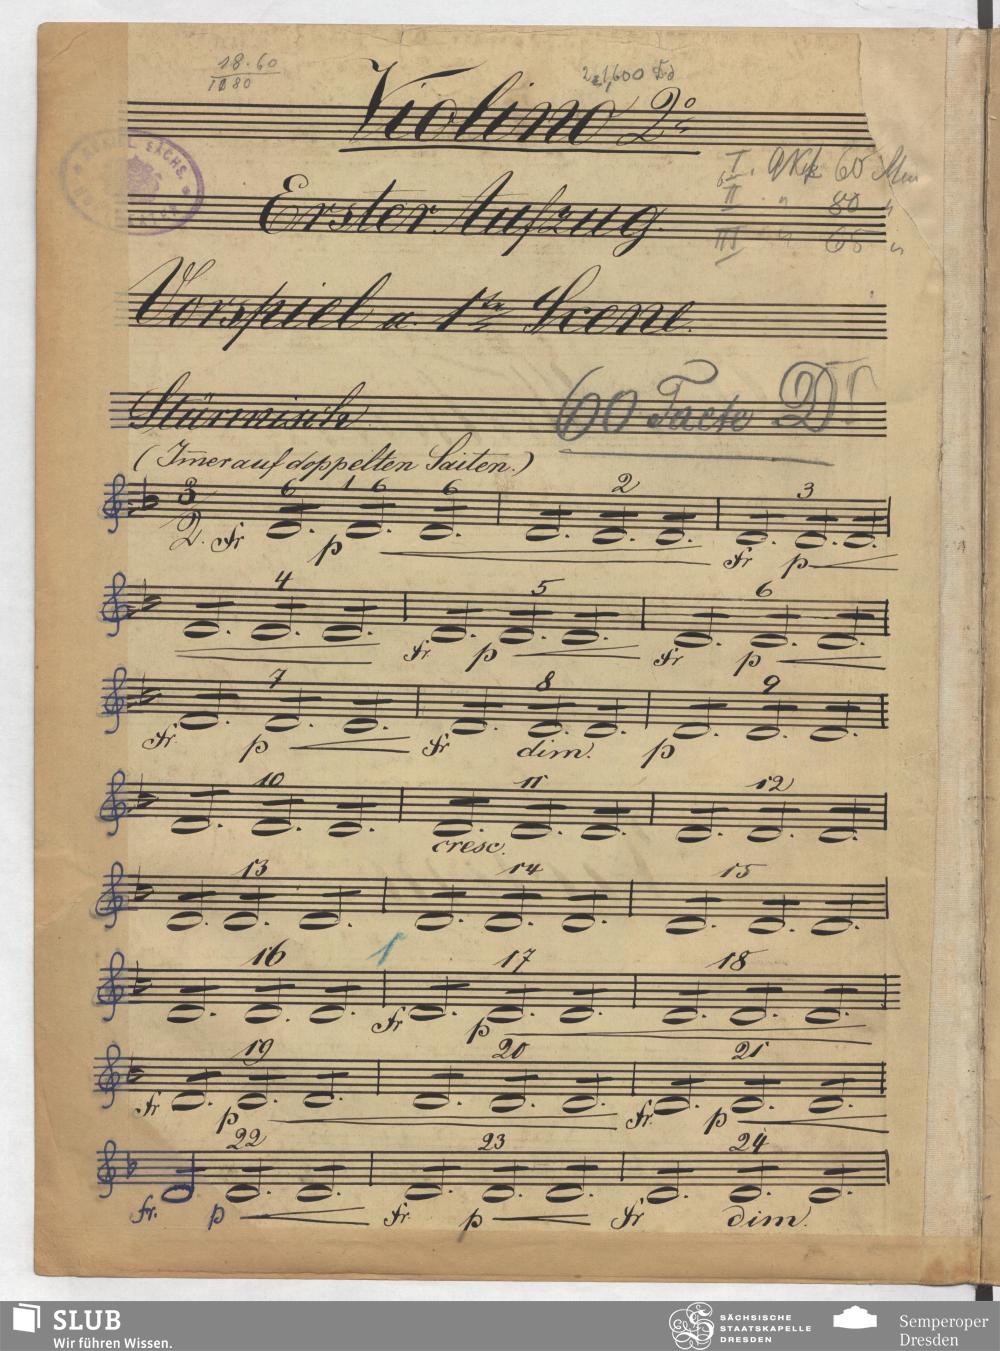 18.60
1080
Violino 2º
KÖNIGL. SÄCHS.
I. 9 60 Min
Erster Aufzug.
II " 80 "
III " 65 "
Vorspiel u. 1te Scene.
Stürmisch
60 Tacte D
(Immer auf doppelten Saiten.)
3 6 1 6 6 2 3
2. fr p fr p
4 5 6
fr p fr p
7 8 9
fr p fr dim. p
10 11 12
cresc.
13 14 15
1
16 17 18
fr p
19 20 21
fr p fr p
22 23 24
fr. p fr p fr dim.
SLUB
Wir führen Wissen.
SÄCHSISCHE
STAATSKAPELLE
DRESDEN
Semperoper
Dresden